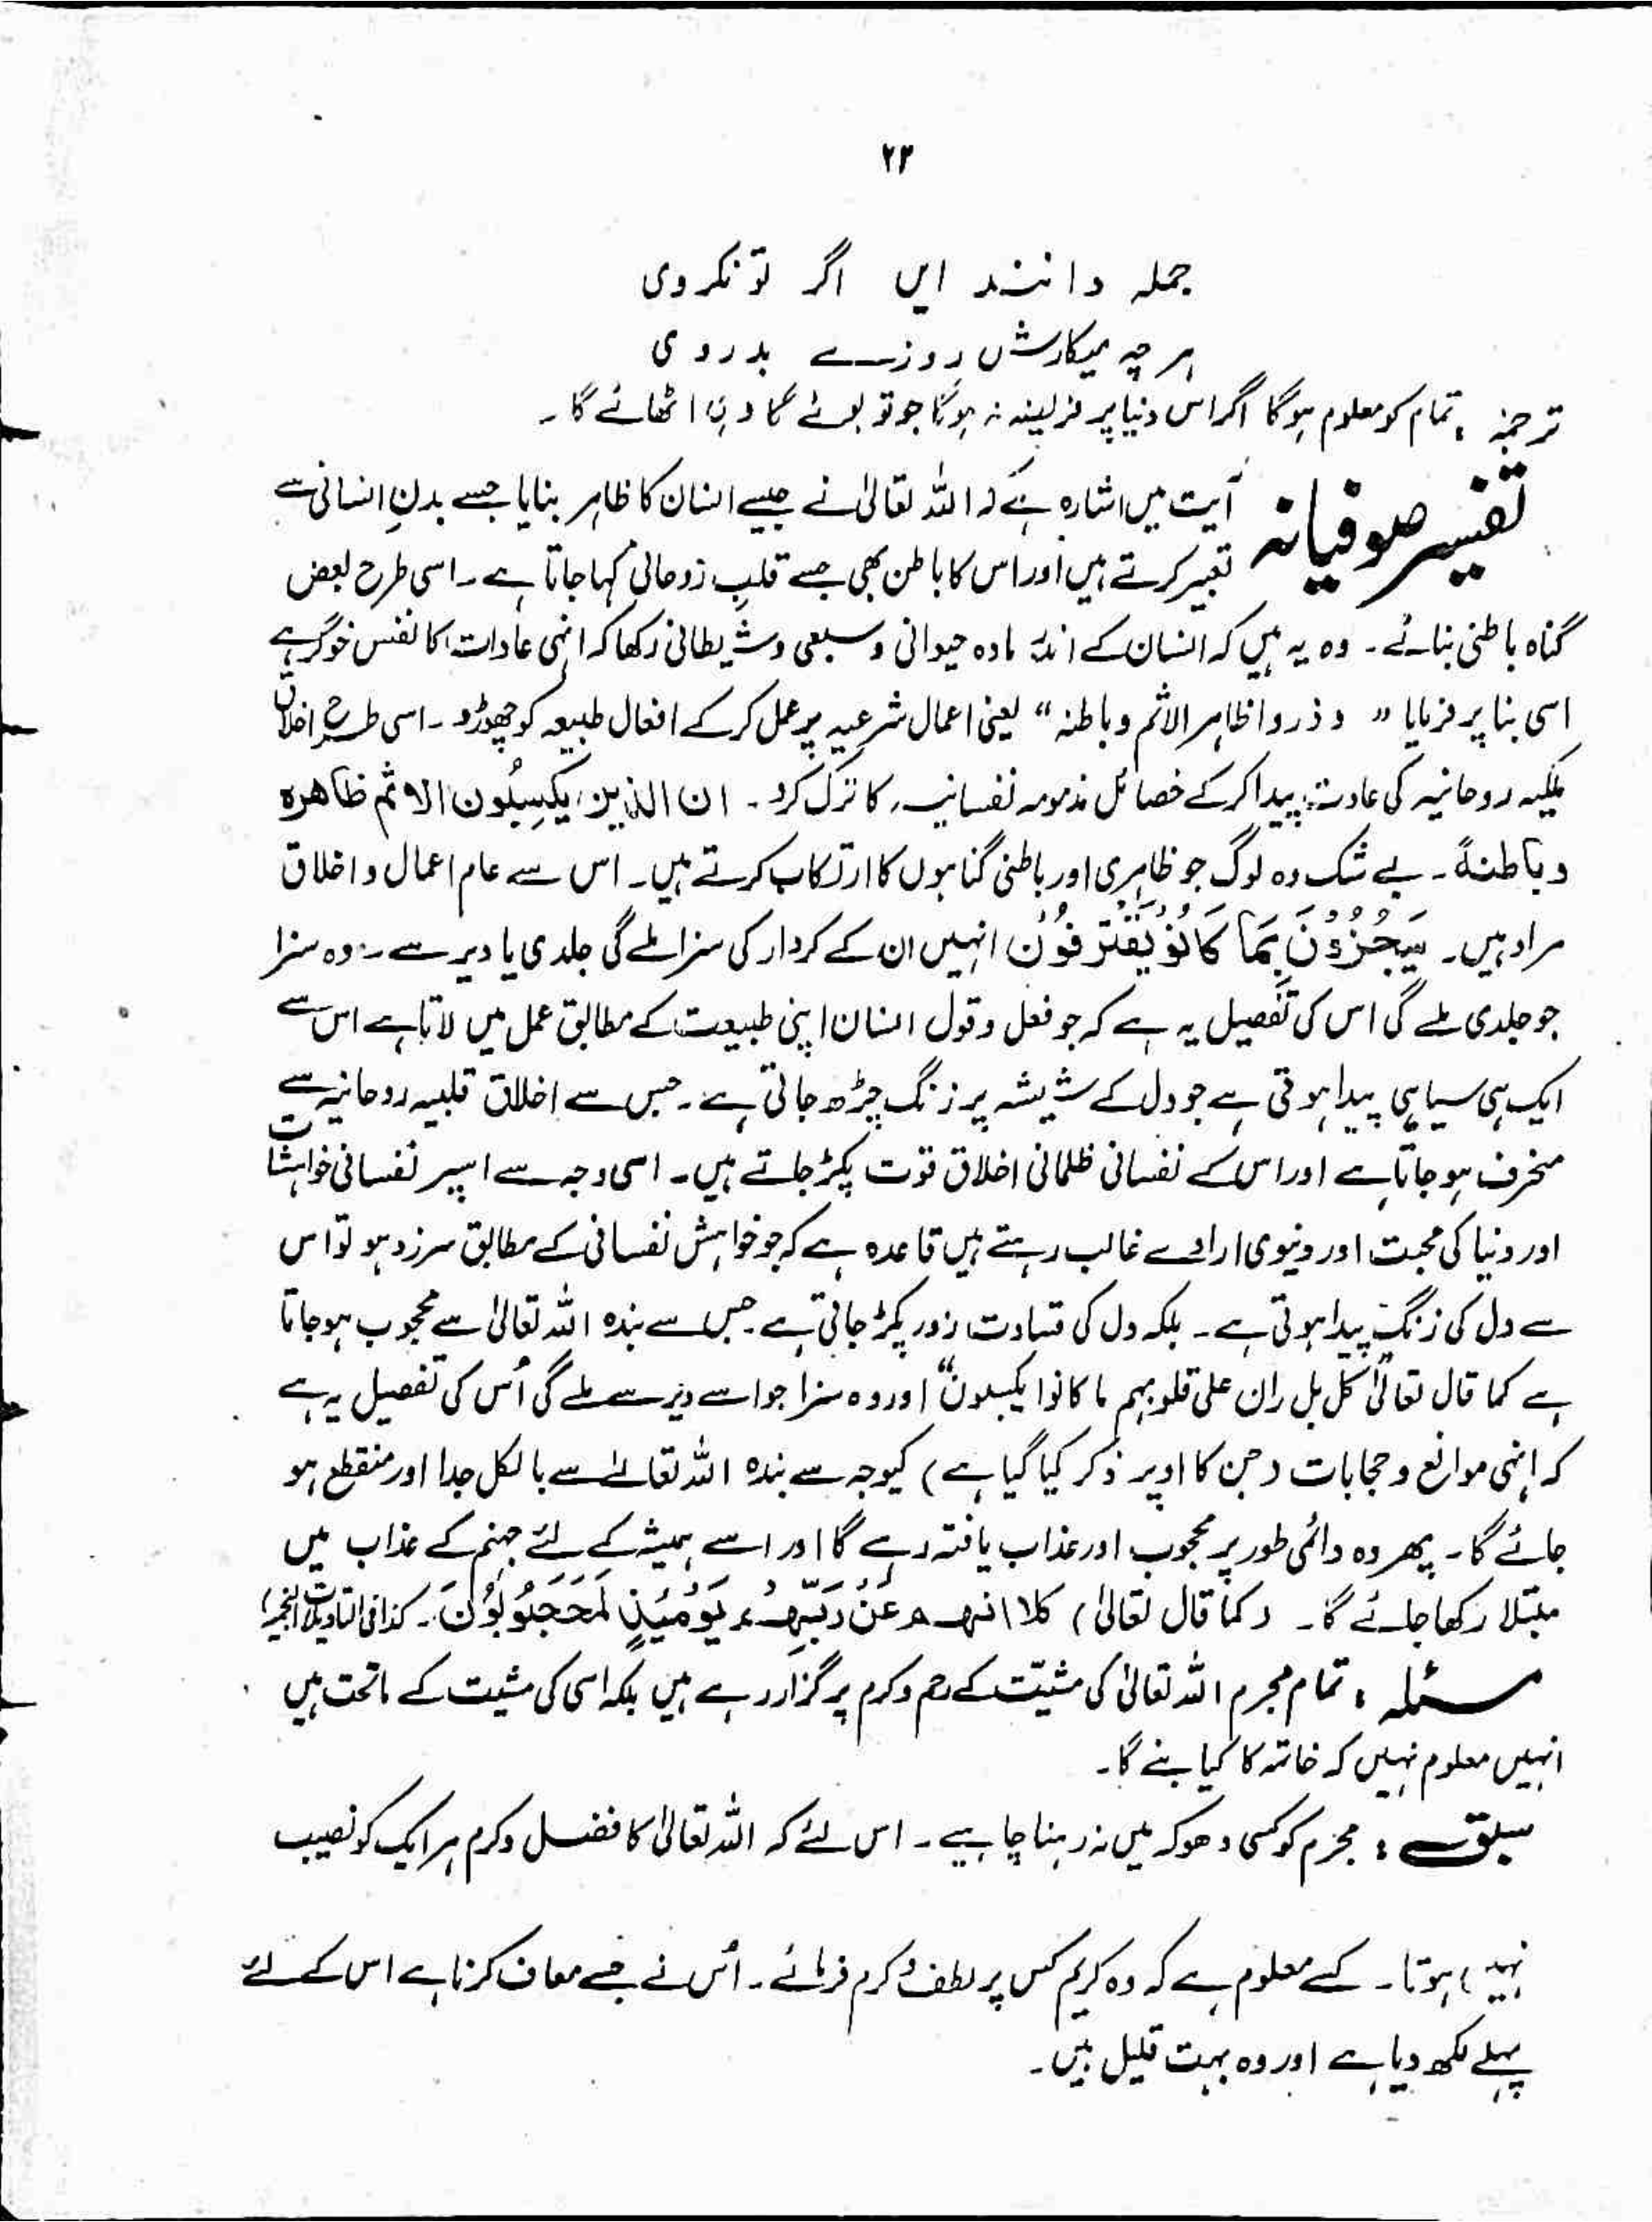 ۲۳
جملہ دانند ایں اگر تو نگروی
ہرچہ میکارش روزے بدروی
ترجمہ : تمام کو معلوم ہوگا اگر اس دنیا پر فریفتہ نہ ہوگا جو تو بوئے گا وہی اٹھائے گا۔
تفسیر صوفیانہ آیت میں اشارہ ہے کہ اللہ تعالیٰ نے جیسے انسان کا ظاہر بنایا جسے بدنِ انسانی سے
تعبیر کرتے ہیں اور اس کا باطن بھی جسے قلبِ روحانی کہا جاتا ہے۔ اسی طرح بعض
گناہ باطنی بنائے۔ وہ یہ ہیں کہ انسان کے اندر مادہ حیوانی و سبعی و شیطانی رکھا کہ انہی عادات کا نفس خوگر ہے
اسی بنا پر فرمایا ” و ذروا ظاہر الاثم و باطنہ “ یعنی اعمال شرعیہ پر عمل کر کے افعال طبیعہ کو چھوڑو۔ اسی طرح اخلاق
ملکیہ روحانیہ کی عادت پیدا کر کے خصائل مذمومہ نفسانیہ کا ترک کرو۔ ان الذین یکسِبُون الاثم ظاھرہ
و باطنةً۔ بے شک وہ لوگ جو ظاہری اور باطنی گناہوں کا ارتکاب کرتے ہیں۔ اس سے عام اعمال و اخلاق
مراد ہیں۔ سَیُجْزَوْنَ بِمَا کَانُوْ یَقْتَرِفُوْنَ انہیں ان کے کردار کی سزا ملے گی جلدی یا دیر سے۔ وہ سزا
جو جلدی ملے گی اس کی تفصیل یہ ہے کہ جو فعل و قول انسان اپنی طبیعت کے مطابق عمل میں لاتا ہے اس سے
ایک ہی سیاہی پیدا ہوتی ہے جو دل کے شیشہ پر زنگ چڑھ جاتی ہے۔ جس سے اخلاق قلبیہ روحانیہ سے
منحرف ہو جاتا ہے اور اس کے نفسانی ظلمانی اخلاق قوت پکڑ جاتے ہیں۔ اسی وجہ سے اسپر نفسانی خواہشات
اور دنیا کی محبت اور دنیوی ارادے غالب رہتے ہیں قاعدہ ہے کہ جو خواہش نفسانی کے مطابق سرزد ہو تو اس
سے دل کی زنگ پیدا ہوتی ہے۔ بلکہ دل کی قساوت زور پکڑ جاتی ہے۔ جس سے بندہ اللہ تعالیٰ سے محجوب ہو جاتا
ہے کما قال تعالیٰ کل بل ران علی قلوبہم ما کانوا یکسبون“ اور وہ سزا جو اسے دیر سے ملے گی اُس کی تفصیل یہ ہے
کہ انہی موانع و حجابات (جن کا اوپر ذکر کیا گیا ہے) کیوجہ سے بندہ اللہ تعالیٰ سے بالکل جدا اور منقطع ہو
جائے گا۔ پھر وہ دائمی طور پر محجوب اور عذاب یافتہ رہے گا اور اسے ہمیشہ کے لئے جہنم کے عذاب میں
مبتلا رکھا جائے گا۔ (کما قال تعالیٰ) کلا انہم عَنْ رَبِّہِمْ یَوْمَئِذٍ لَمَحْجُوْبُوْنَ۔ کذا فی التاویلات النجمیہ)
مسئلہ : تمام مجرم اللہ تعالیٰ کی مشیّت کے رحم و کرم پر گزار رہے ہیں بلکہ اسی کی مشیت کے ماتحت ہیں
انہیں معلوم نہیں کہ خاتمہ کا کیا بنے گا۔
سبق : مجرم کو کسی دھوکہ میں نہ رہنا چاہیے۔ اس لئے کہ اللہ تعالیٰ کا فضل و کرم ہر ایک کو نصیب
نہیں ہوتا۔ کسے معلوم ہے کہ وہ کریم کس پر لطف و کرم فرمائے۔ اُس نے جسے معاف کرنا ہے اس کے لئے
پہلے لکھ دیا ہے اور وہ بہت قلیل ہیں۔